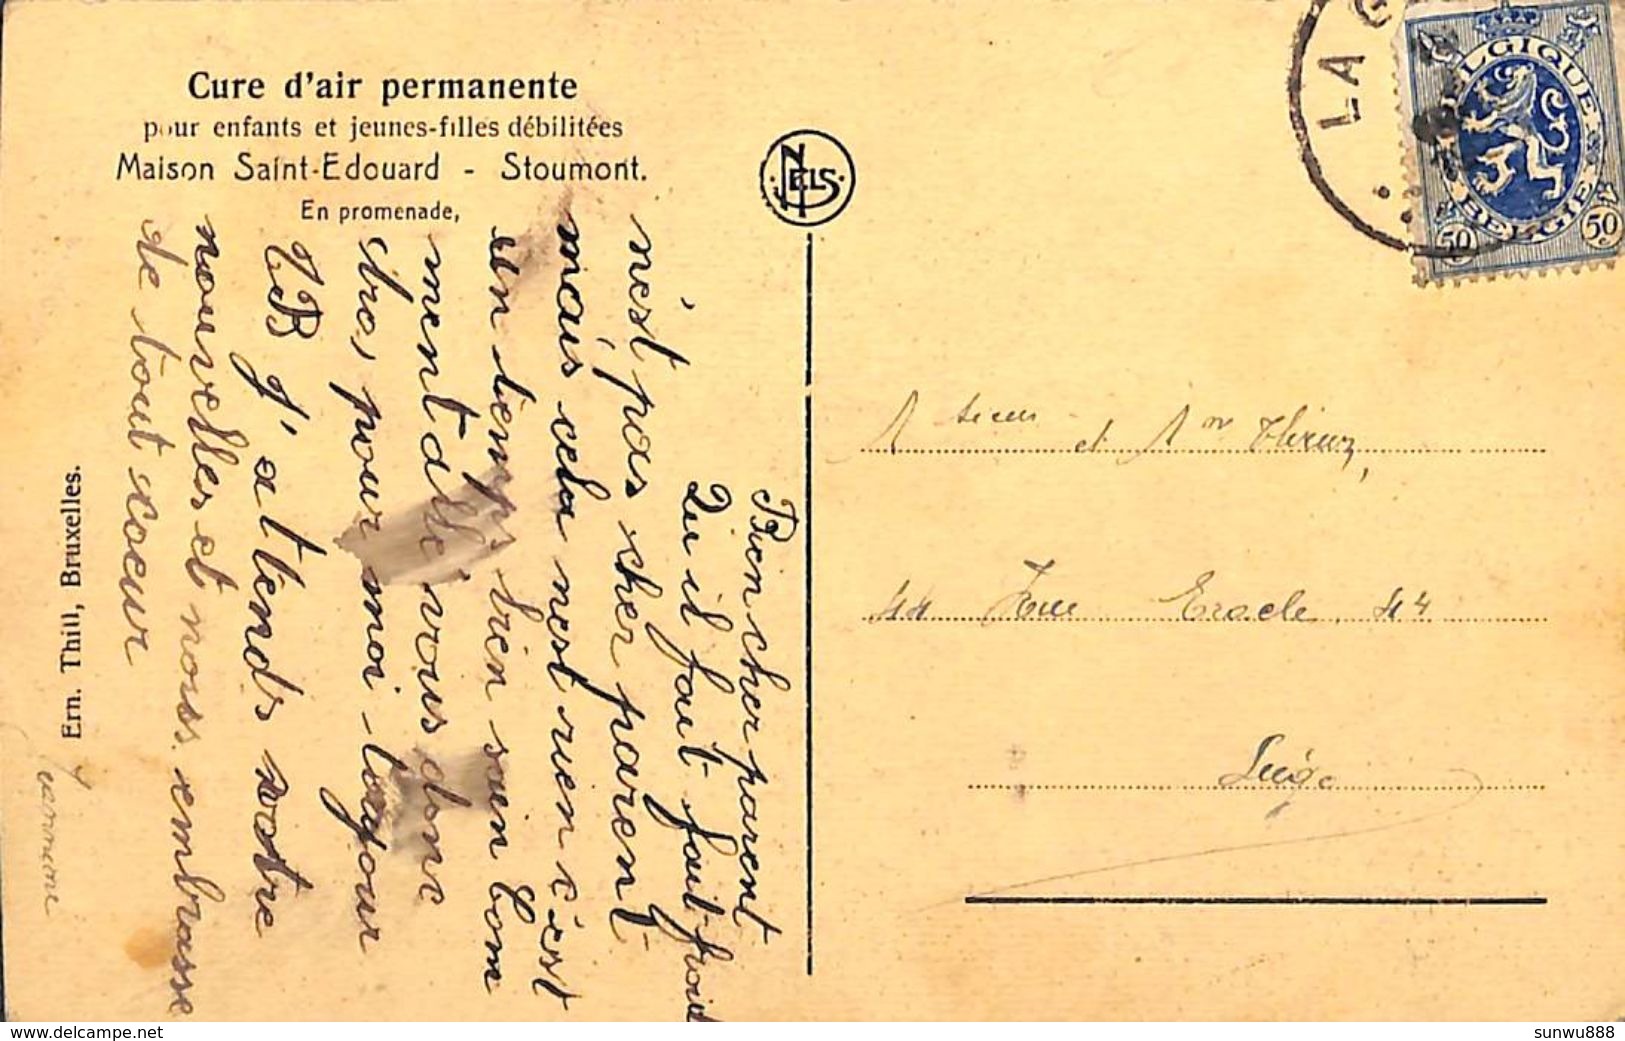 Cure d'air permanente
pour enfants et jeunes-filles débilitées
Maison Saint-Edouard - Stoumont.
En promenade,
NELS
LA G
BELGIQUE
BELGIE
50 50
Bien cher parent
Qu il fait fait froid
n'est pas cher parent
mais cela nest rien c'est
un temps bien sain Com
ment allé vous donc
chro, pour moi toujour
TB J'attends votre
nouvelles et nous embrasse
de tout coeur
Ern. Thill, Bruxelles.
et
44 Rue Eracle 44
Liége
ebay.com
sunwu888